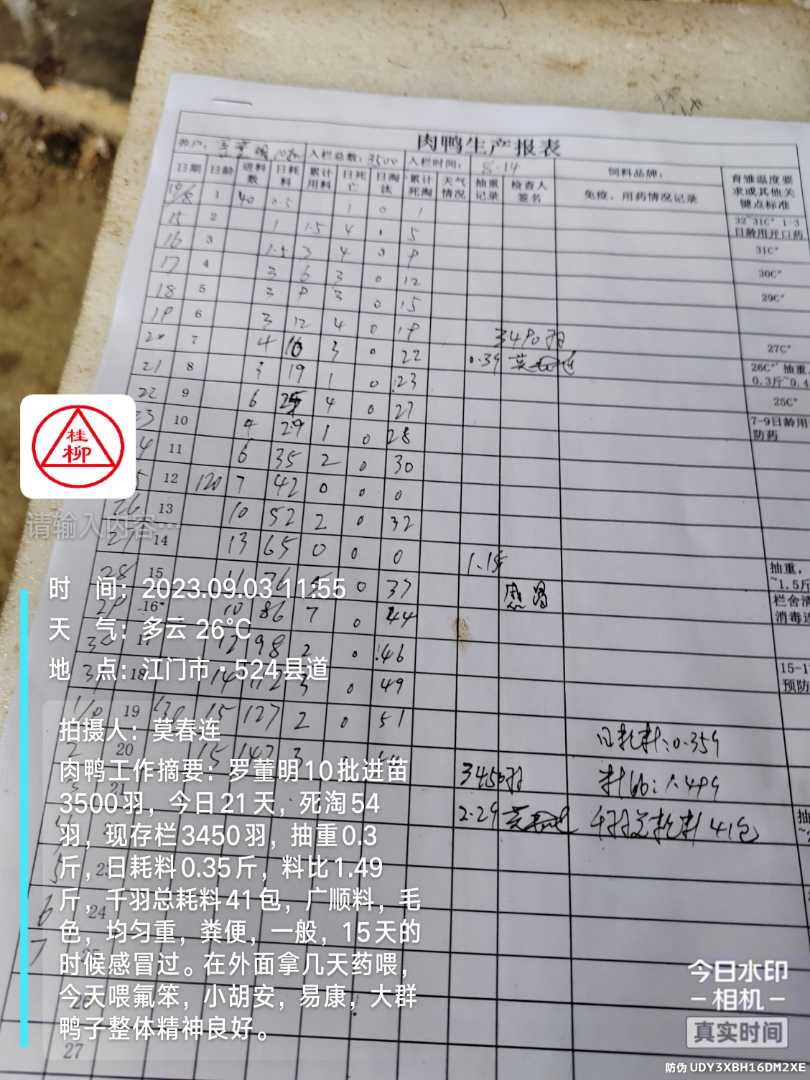 肉鸭生产报表
入栏总数：3500 入栏时间：8-14 饲料品牌：
日期 日龄 进料数 日耗料 累计用料 日死亡 日淘汰 累计死淘 天气情况 抽重记录 检查人签名 免疫、用药情况记录 育雏温度要求或其他关键点标准
1 40 0.5 1 0 1
32~31C° 1-3日龄用开口药
15 2 1 1.5 4 0 5
16 3 1.5 3 4 0 9 31C°
17 4 3 6 3 0 12 30C°
18 5 3 9 3 0 15 29C°
19 6 3 12 4 0 19
3490羽
20 7 4 16 3 0 22 0.39 27C°
21 8 3 19 1 0 23 26C° 抽重，
0.3斤~0.4
22 9 6 25 4 0 27 25C°
23 10 4 29 1 0 28 7-9日龄用
防药
11 6 35 2 0 30
12 120 7 42 0 0 0
26 13 10 52 2 0 32
14 13 65 0 0 0 1.15
28 15 0 37 感冒 抽重，
~1.5斤
16 10 86 7 0 44 栏舍清
消毒
12 98 2 0 46
18 14 112 3 0 49 15-1
预防
19 130 15 127 2 0 51
日耗料：0.359
2 20 15 142 3
3450羽 料比：1.499
2.29 千羽总耗料41包
5
6 24
7
27
桂柳
请输入内容…
时 间：2023.09.03 11:55
天 气：多云 26℃
地 点：江门市·524县道
拍摄人：莫春连
肉鸭工作摘要：罗董明10批进苗
3500羽，今日21天，死淘54
羽，现存栏3450羽，抽重0.3
斤，日耗料0.35斤，料比1.49
斤，千羽总耗料41包，广顺料，毛
色，均匀重，粪便，一般，15天的
时候感冒过。在外面拿几天药喂，
今天喂氟笨，小胡安，易康，大群
鸭子整体精神良好。
今日水印
相机
真实时间
防伪 UDY3XBH16DM2XE